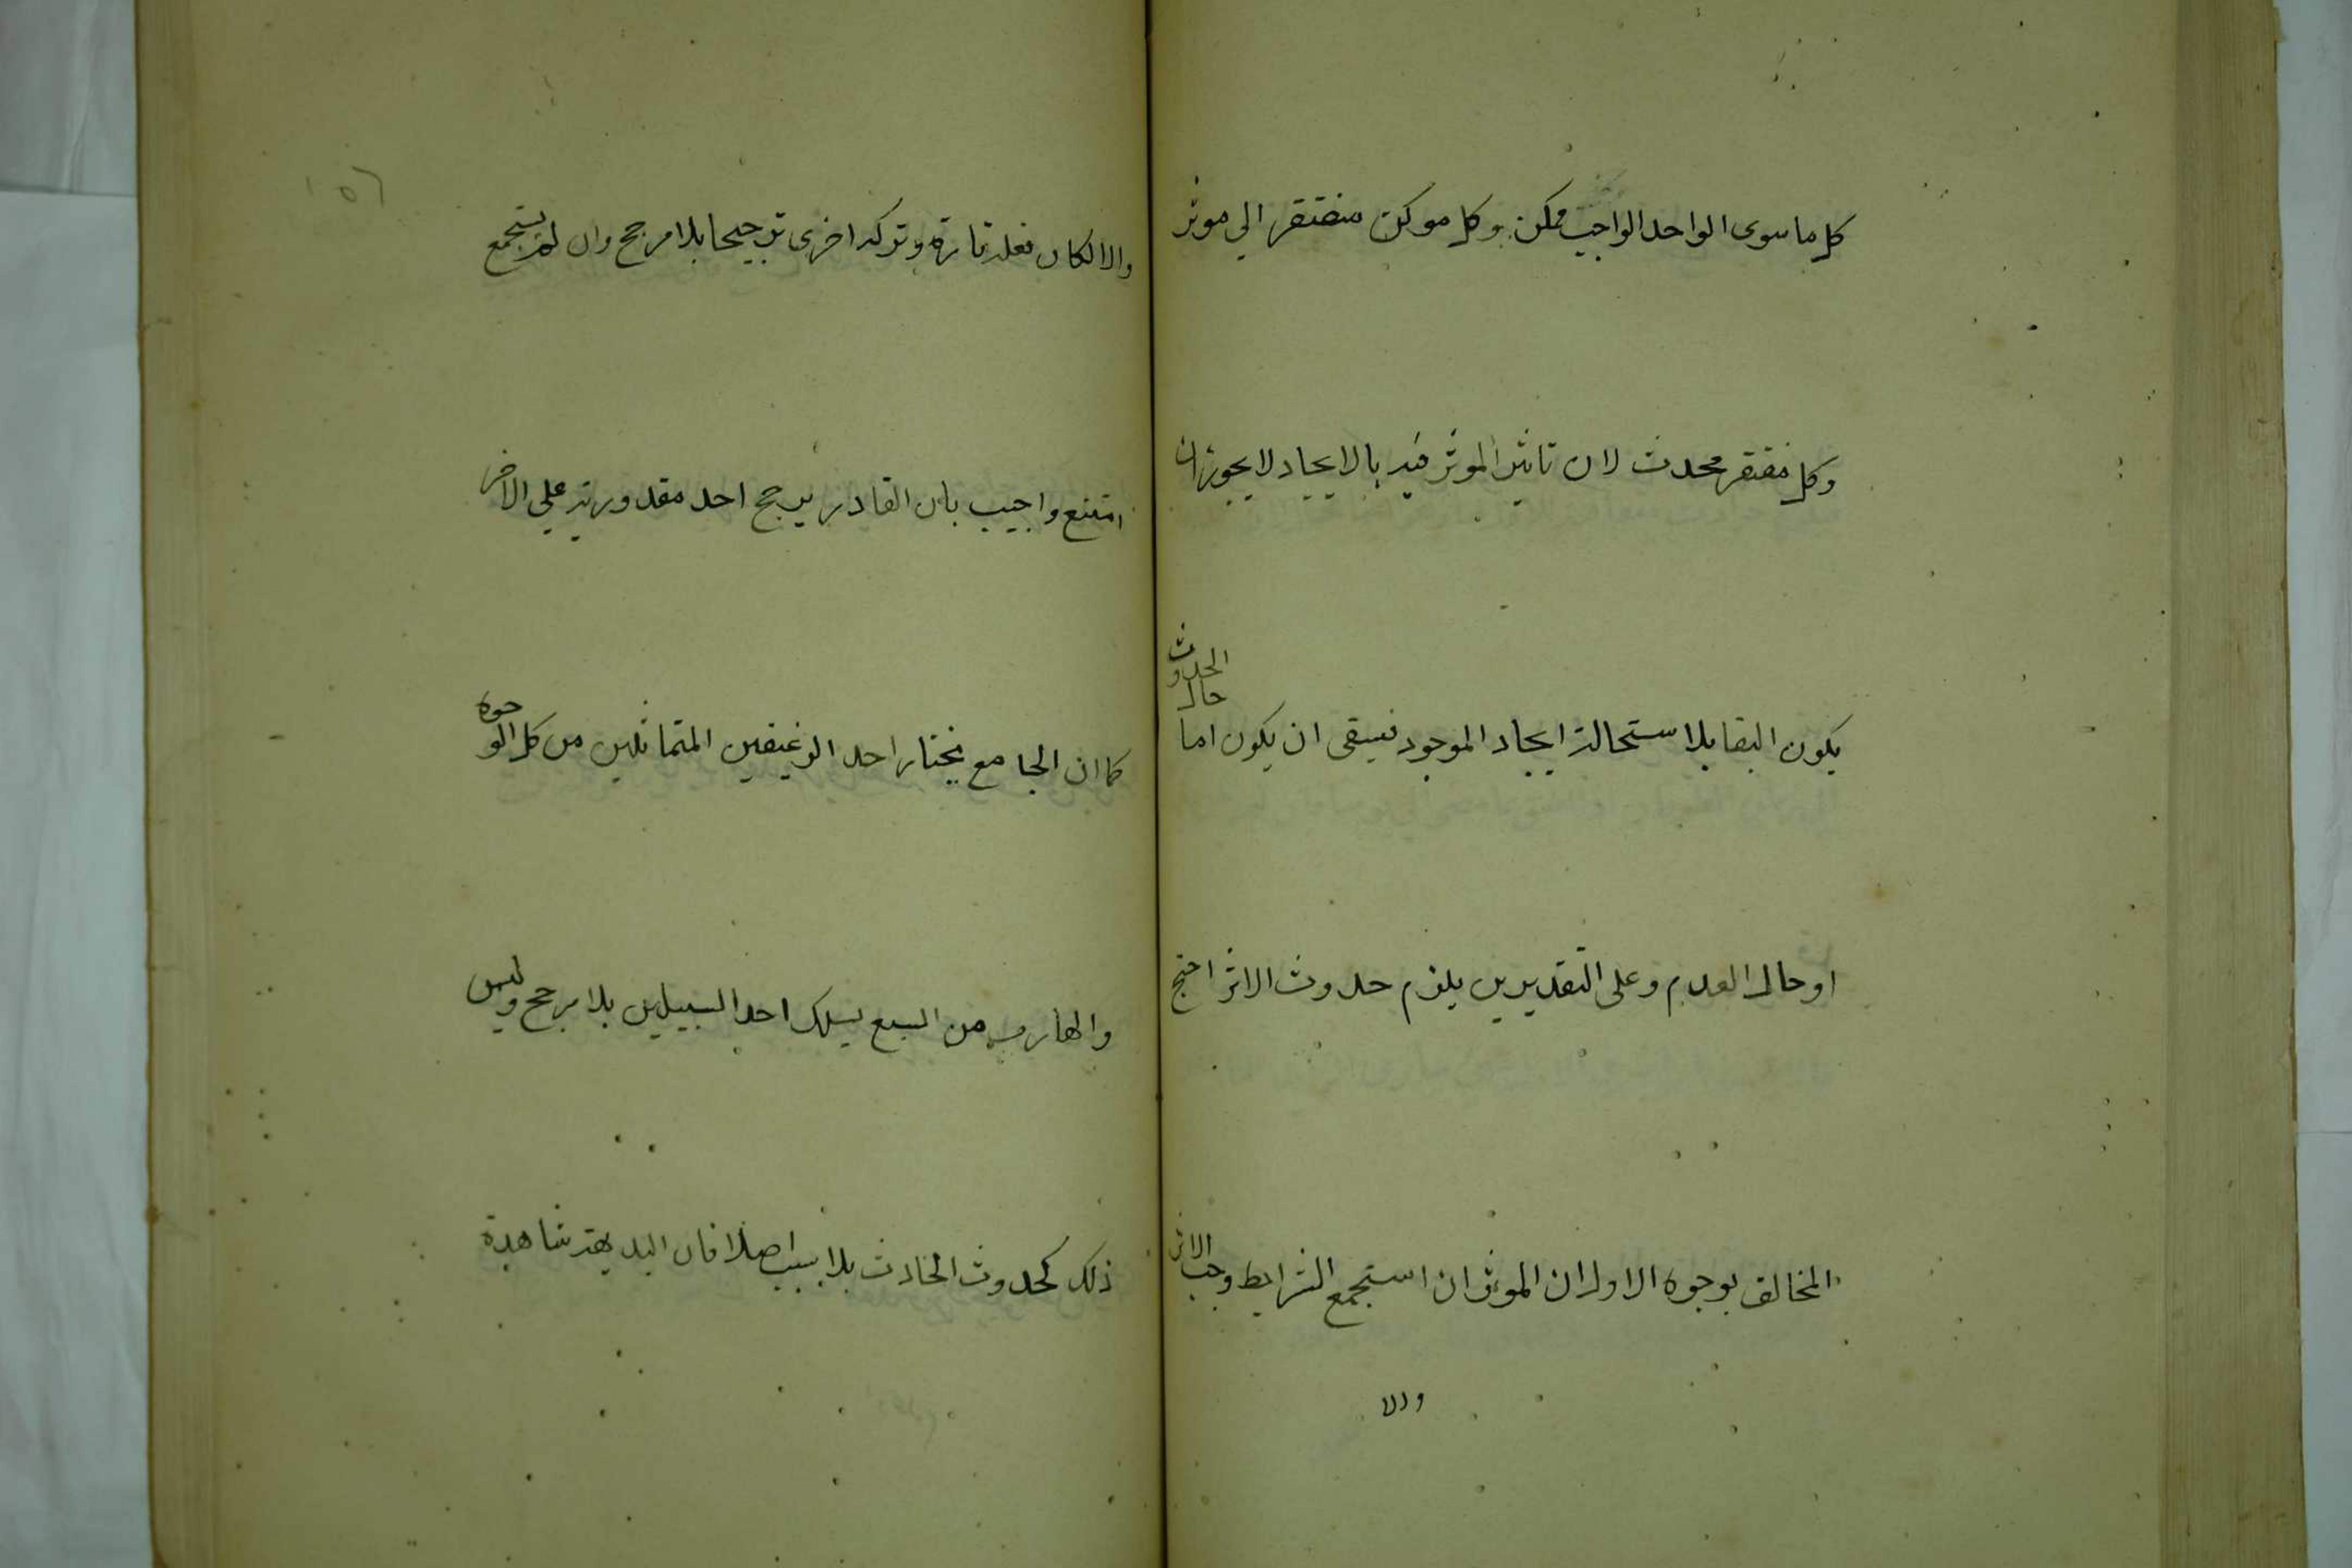 كل ما سوى الواحد الواجب ممكن وكل موكن منفتقر الي موثر
وكل مفتقر محدث لان تاثير الموثر فيه بالايجاد لا يجوز ان
يكون البقا بلا ستحالة ايجاد الموجود فيبقى ان يكون اما حال الحدوث
او حال العدم وعلى التقديرين يلزم حدوث الاثر احتج
المخالف بوجوه الاول ان الموثر ان استجمع الشرايط وجب الاثر
والا
١٥٦
والا لكان فعله تارة وتركه اخرى ترجيحا بلا مرجح وان لم يستجمع
امتنع واجيب بان القادر يرجح احد مقدوريه على الاخر
كما ان الجامع يختار احد الرغيفين المتماثلين من كل الوجوه
والهارب من السبع يسلك احد السبيلين بلا مرجح وليس
ذلك كحدوث الحادث بلا سبب اصلا فان البديهة شاهدة